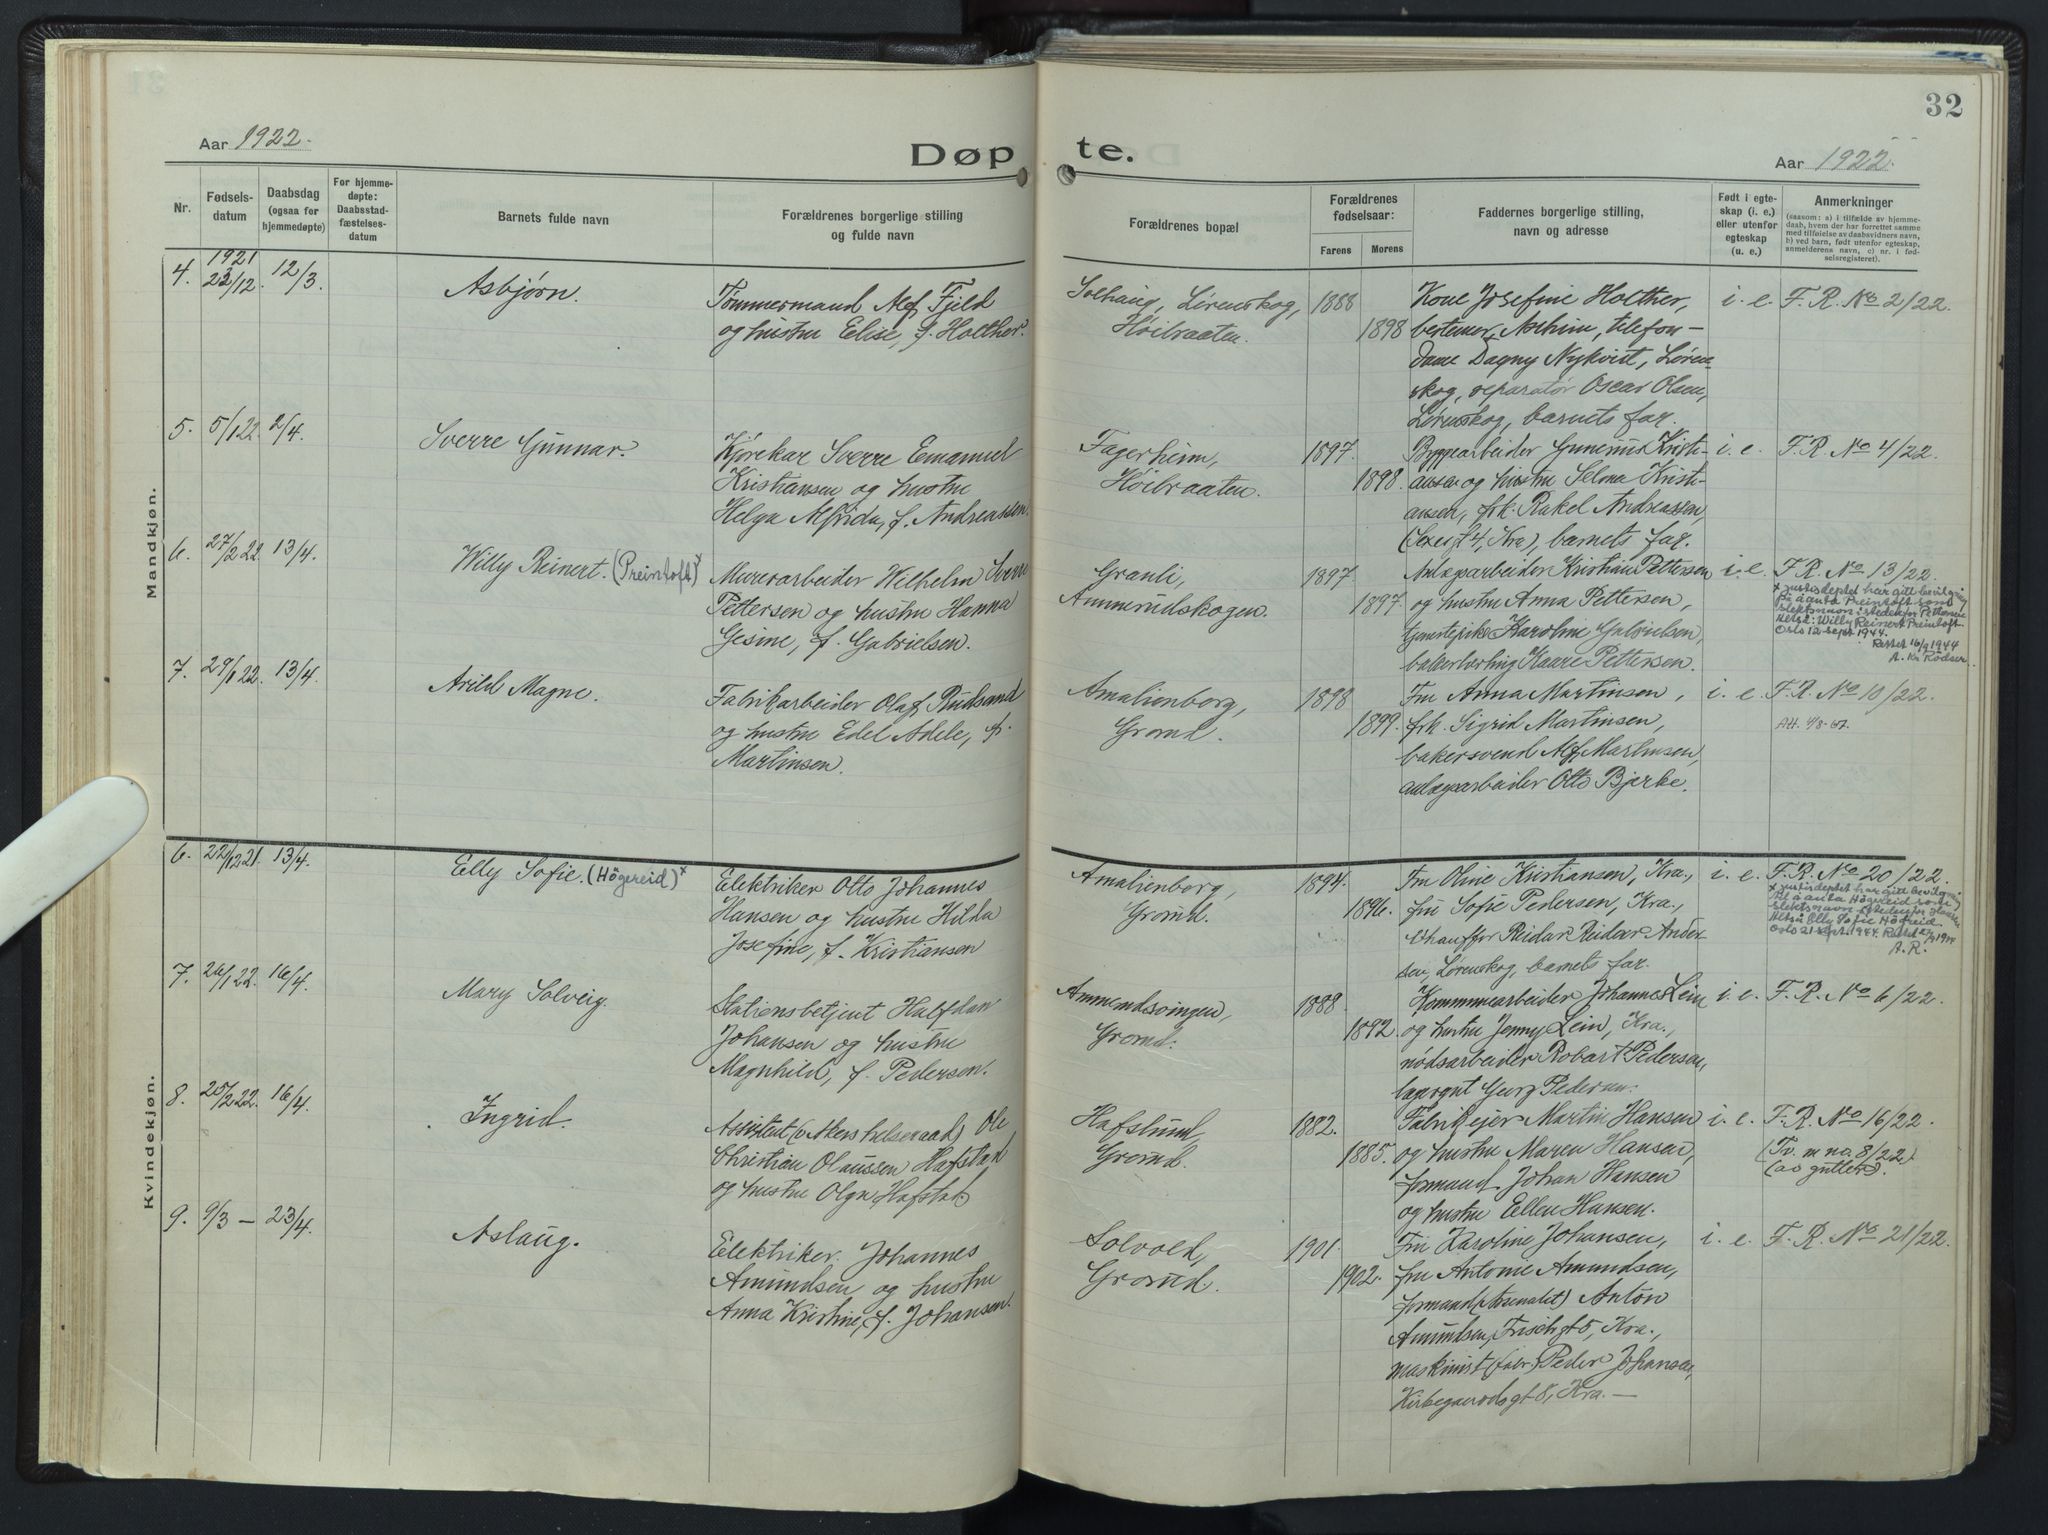 32
Aar 1922.
Døpte.
Aar 1922.
Nr.
Fødselsdatum
Daabsdag (ogsaa for hjemmedøpte)
For hjemmedøpte: Daabsstadfæstelsesdatum
Barnets fulde navn
Forældrenes borgerlige stilling og fulde navn
Forældrenes bopæl
Forældrenes fødselsaar:
Farens
Morens
Faddernes borgerlige stilling, navn og adresse
Født i egteskap (i. e.) eller utenfor egteskap (u. e.)
Anmerkninger
(saasom: a) i tilfælde av hjemmedaab, hvem der har forrettet samme med tilføielse av daabsvidners navn, b) ved barn, født utenfor egteskap, anmelderens navn, c) nr. i fødselsregisteret).
Mandkjøn.
4.
1921
23/12
12/3.
Asbjørn.
Tømmermand Alf Fjeld
og hustru Elise, f. Holther.
Solhaug, Lørenskog,
Høibraaten.
1888
1898
Kone Josefine Holther,
bestemor, Askim, telefon-
dame Dagny Nykvist, Løren-
skog, reparatør Oscar Olsen,
Lørenskog, barnets far.
i. e.
F. R. No 2/22.
5.
5/1 22.
2/4.
Sverre Gunnar.
Kjørekar Sverre Emanuel
Kristiansen og hustru
Helga Alfrida, f. Andreassen.
Fagerheim,
Høibraaten.
1897.
1898.
Byggearbeider Gunerius Kristi-
ansen og hustru Selma Kristi-
ansen, frk. Rakel Andreassen,
4, Kra), barnets far.
i. e.
F. R. No 4/22.
6.
27/2 22.
13/4.
Willy Reinert. (Preintoft)x
Murerarbeider Wilhelm Sverre
Pettersen og hustru Hanna
Gesine, f. Gabrielsen.
Granli,
Ammerudskogen.
1897.
1897.
Anlægsarbeider Kristian Pettersen
og hustru Anna Pettersen,
tjenestepike Karoline Gabrielsen,
bakerlærling Kaare Pettersen.
i. e.
F. R. No 13/22.
x Justisdeptet har gitt bevilgning
på å anta Preintoft som
slektsnavn istedenfor Pettersen
Altså: Willy Reinert Preintoft.
Oslo 12 sept 1944.
Rettet 16/9 1944
A. Kr Rödser.
7.
29/1 22.
13/4.
Arild Magne.
Fabrikarbeider Olaf Rudsand
og hustru Edel Adele, f.
Martinsen.
Amalienborg,
Grorud.
1898
1899.
Fru Anna Martinsen,
frk. Sigrid Martinsen,
bakersvend Alf Martinsen,
anlægsarbeider Otto Bjerke.
i. e.
F. R. No 10/22.
Att. 4/8-67.
Kvindekjøn.
6.
22/12 21.
13/4.
Elly Sofie. (Högereid)x
Elektriker Otto Johannes
Hansen og hustru Hilda
Josefine, f. Kristiansen
Amalienborg,
Grorud.
1894.
1896.
Fru Oline Kristiansen, Kra.,
fru Sofie Pedersen, Kra.,
Chauffør Reidar Reidar Ander-
sen, Lørenskog, barnets far.
i. e.
F. R. No 20/22.
x Justisdeptet har gitt bevilgning
til å anta Högereid som
slektsnavn istedenfor Hansen
Altså Elly Sofie Högreid.
Oslo 21 sept. 1944. Rettet 27/9 1944
A. R.
7.
26/1 22.
16/4.
Mary Solveig.
Stationsbetjent Halfdan
Johansen og hustru
Magnhild, f. Pedersen.
Ammerudsvingen,
Grorud.
1888.
1892.
Kommunearbeider Johannes Lein
og hustru Jenny Lein, Kra.,
nødsarbeider Robart Pedersen,
Georg Pedersen.
i. e.
F. R. No 6/22.
8.
25/2 22.
16/4.
Ingrid.
Assistent (v Akers helseraad) Ole
Christian Olaussen Hafstad
og hustru Olga Hafstad
Hafslund,
Grorud.
1882.
1885.
Fabrikeier Martin Hansen
og hustru Maren Hansen,
formand Johan Hansen
og hustru Ellen Hansen.
i. e.
F. R. No 16/22.
(Tv. m no. 8/22)
(av gutter).
9.
9/3 —
23/4.
Aslaug.
Elektriker Johannes
Amundsen og hustru
Anna Kristine, f. Johansen.
Solvold,
Grorud.
1901.
1902.
Fru Karoline Johansen,
fru Antonie Amundsen,
formand (Arsenalet) Anton
Amundsen, Frisch gt 5, Kra.,
maskinist Peder Johansen,
Kirkegaardsgt 8, Kra. —
i. e.
F. R. No 21/22.